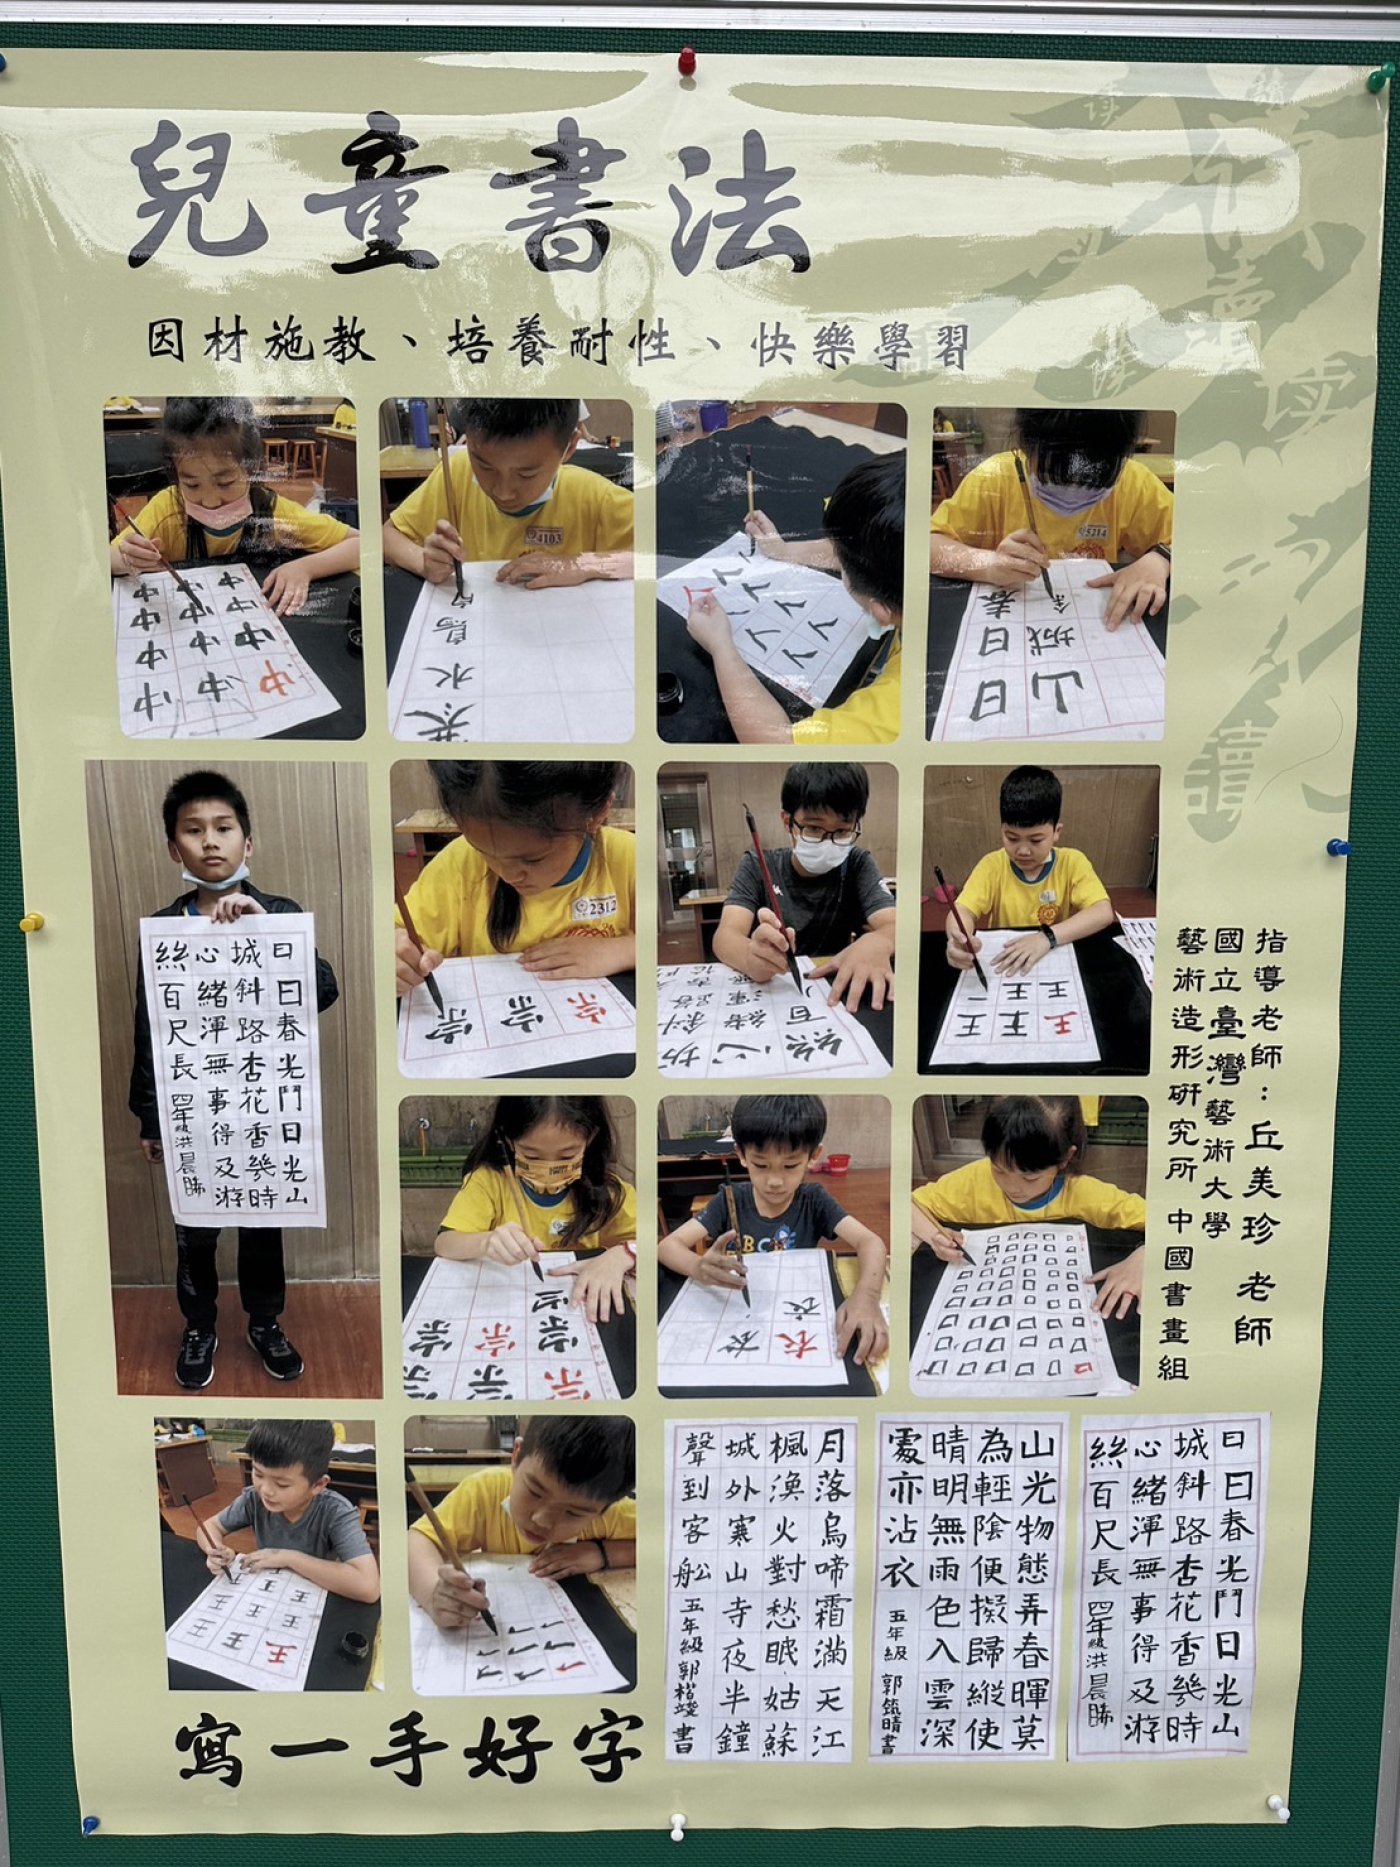 兒童書法
因材施教、培養耐性、快樂學習
4103
5214
中
日
城
山
2312
宗 宗 宗
王
衣
日日春光鬥日光山
城斜路杏花香幾時
心緒渾無事得及游
絲百尺長 四年級洪晨睎
指導老師：丘美珍 老師
國立臺灣藝術大學
藝術造形研究所 中國書畫組
月落烏啼霜滿天江
楓漁火對愁眠姑蘇
城外寒山寺夜半鐘
聲到客船 五年級郭 書
山光物態弄春暉莫
為輕陰便擬歸縱使
晴明無雨色入雲深
處亦沾衣 五年級 郭筑晴書
日日春光鬥日光山
城斜路杏花香幾時
心緒渾無事得及游
絲百尺長 四年級洪晨睎
寫一手好字